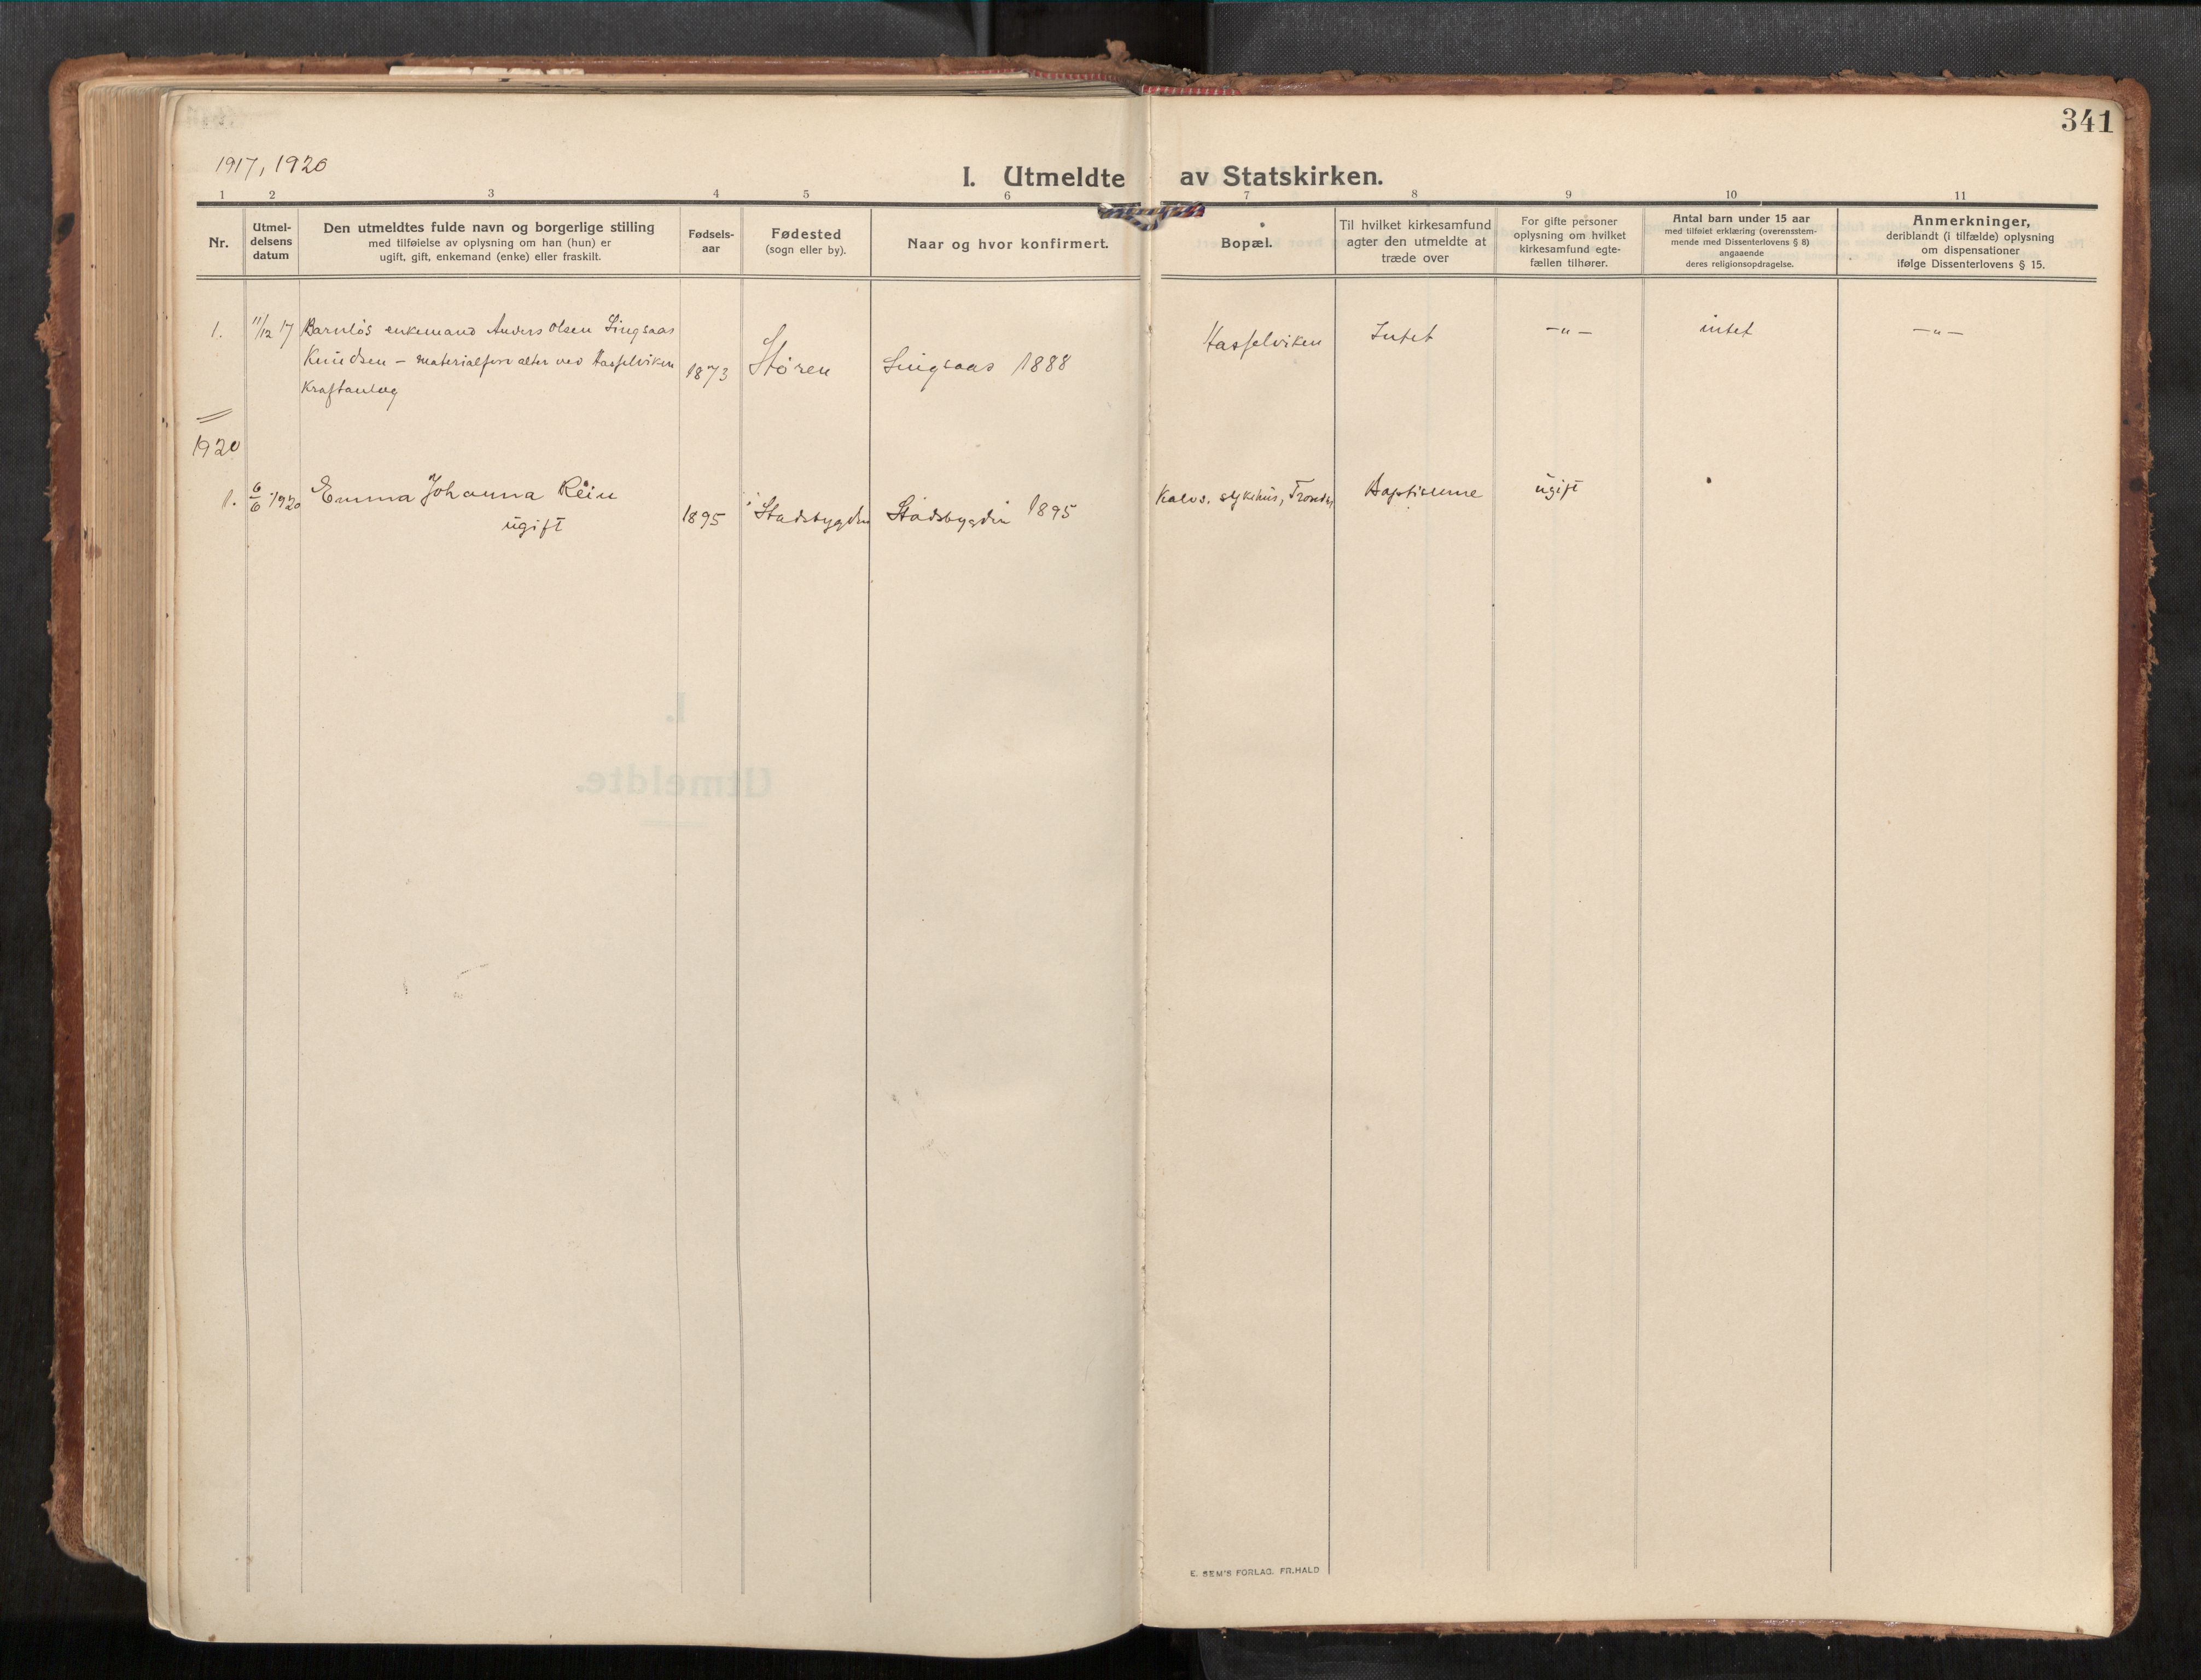 341
1917, 1920
I. Utmeldte av Statskirken.
1 2 3 4 5 6 7 8 9 10 11
Nr.
Utmel-
delsens
datum
Den utmeldtes fulde navn og borgerlige stilling
med tilføielse av oplysning om han (hun) er
ugift, gift, enkemand (enke) eller fraskilt.
Fødsels-
aar
Fødested
(sogn eller by).
Naar og hvor konfirmert.
Bopæl.
Til hvilket kirkesamfund
agter den utmeldte at
træde over
For gifte personer
oplysning om hvilket
kirkesamfund egte-
fællen tilhører.
Antal barn under 15 aar
med tilføiet erklæring (overensstem-
mende med Dissenterlovens § 8)
angaaende
deres religionsopdragelse.
Anmerkninger,
deriblandt (i tilfælde) oplysning
om dispensationer
ifølge Dissenterlovens § 15.
1.
11/12 17
Barnløs enkemand Anders Olsen Singsaas
Knudsen – materialforvalter ved Hasselviken
Kraftanlæg
1873
Støren
Singsaas 1888
Hasselviken
Intet
–"–
intet
–"–
1920
1.
6/6 1920
Emma Johanna Rein
ugift
1895
Stadsbygden
Stadsbygden 1895
Kalvs. sykehus,
Baptisterne
ugift
I.
Utmeldte.
E. SEM'S FORLAG. FR.HALD